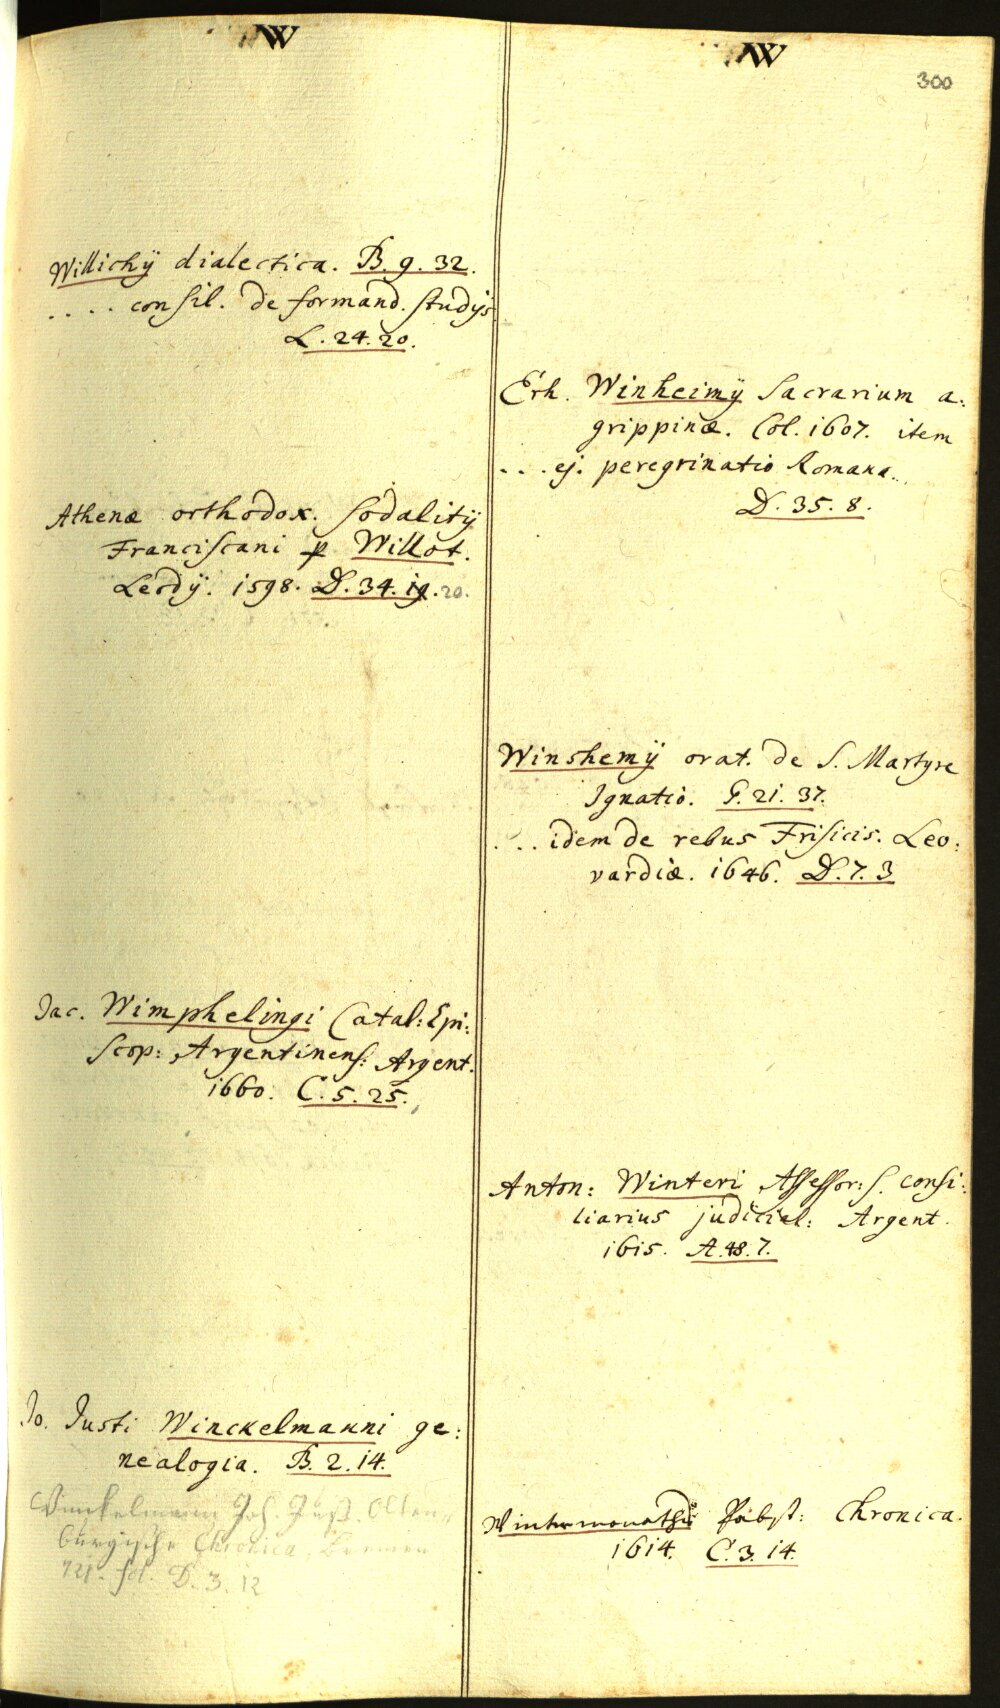 W
Willichÿ dialectica. B. 9. 32.
.... consil. de formand. studÿs
L. 24. 20.
Athenæ orthodox. sodalitÿ
Franciscani p Willot.
Leodÿ. 1598. D. 34. 19. 20.
Jac. Wimphelingi Catal: Epi:
scop: Argentinens: Argent.
1660. C. 5. 25.
Jo. Justi Winckelmanni ge:
nealogia. B. 2. 14.
Winkelmann Joh. Just. Olden
burgische Chronica. Bremen
D. 3. 12
W
300
Erh. Winheimÿ Sacrarium a:
grippinæ. Col. 1607. item
... ej. peregrinatio Romana.
D. 35. 8.
Winshemÿ orat. de S. Martyre
Ignatio. G. 21. 37.
... idem de rebus Frisicis. Leo:
vardiæ. 1646. D. 7. 3
Anton: Winteri Assessor: s. consi:
liarius judicial: Argent.
1615. A. 48. 7.
Pabst: Chronica.
1614. C. 3. 14.